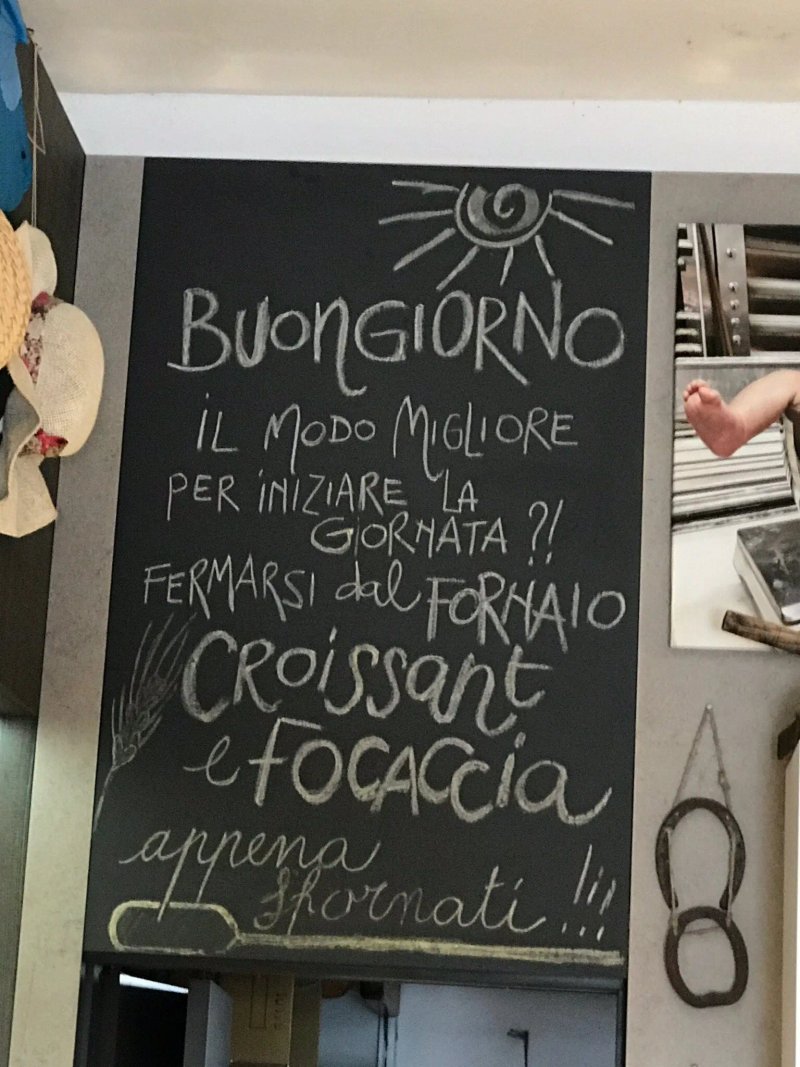 BUONGIORNO
IL MODO MIGLIORE
PER INIZIARE LA
GIORNATA ?!
FERMARSI dal FORNAIO
CROISSANT
e FOCACCIA
appena
sfornati !!!